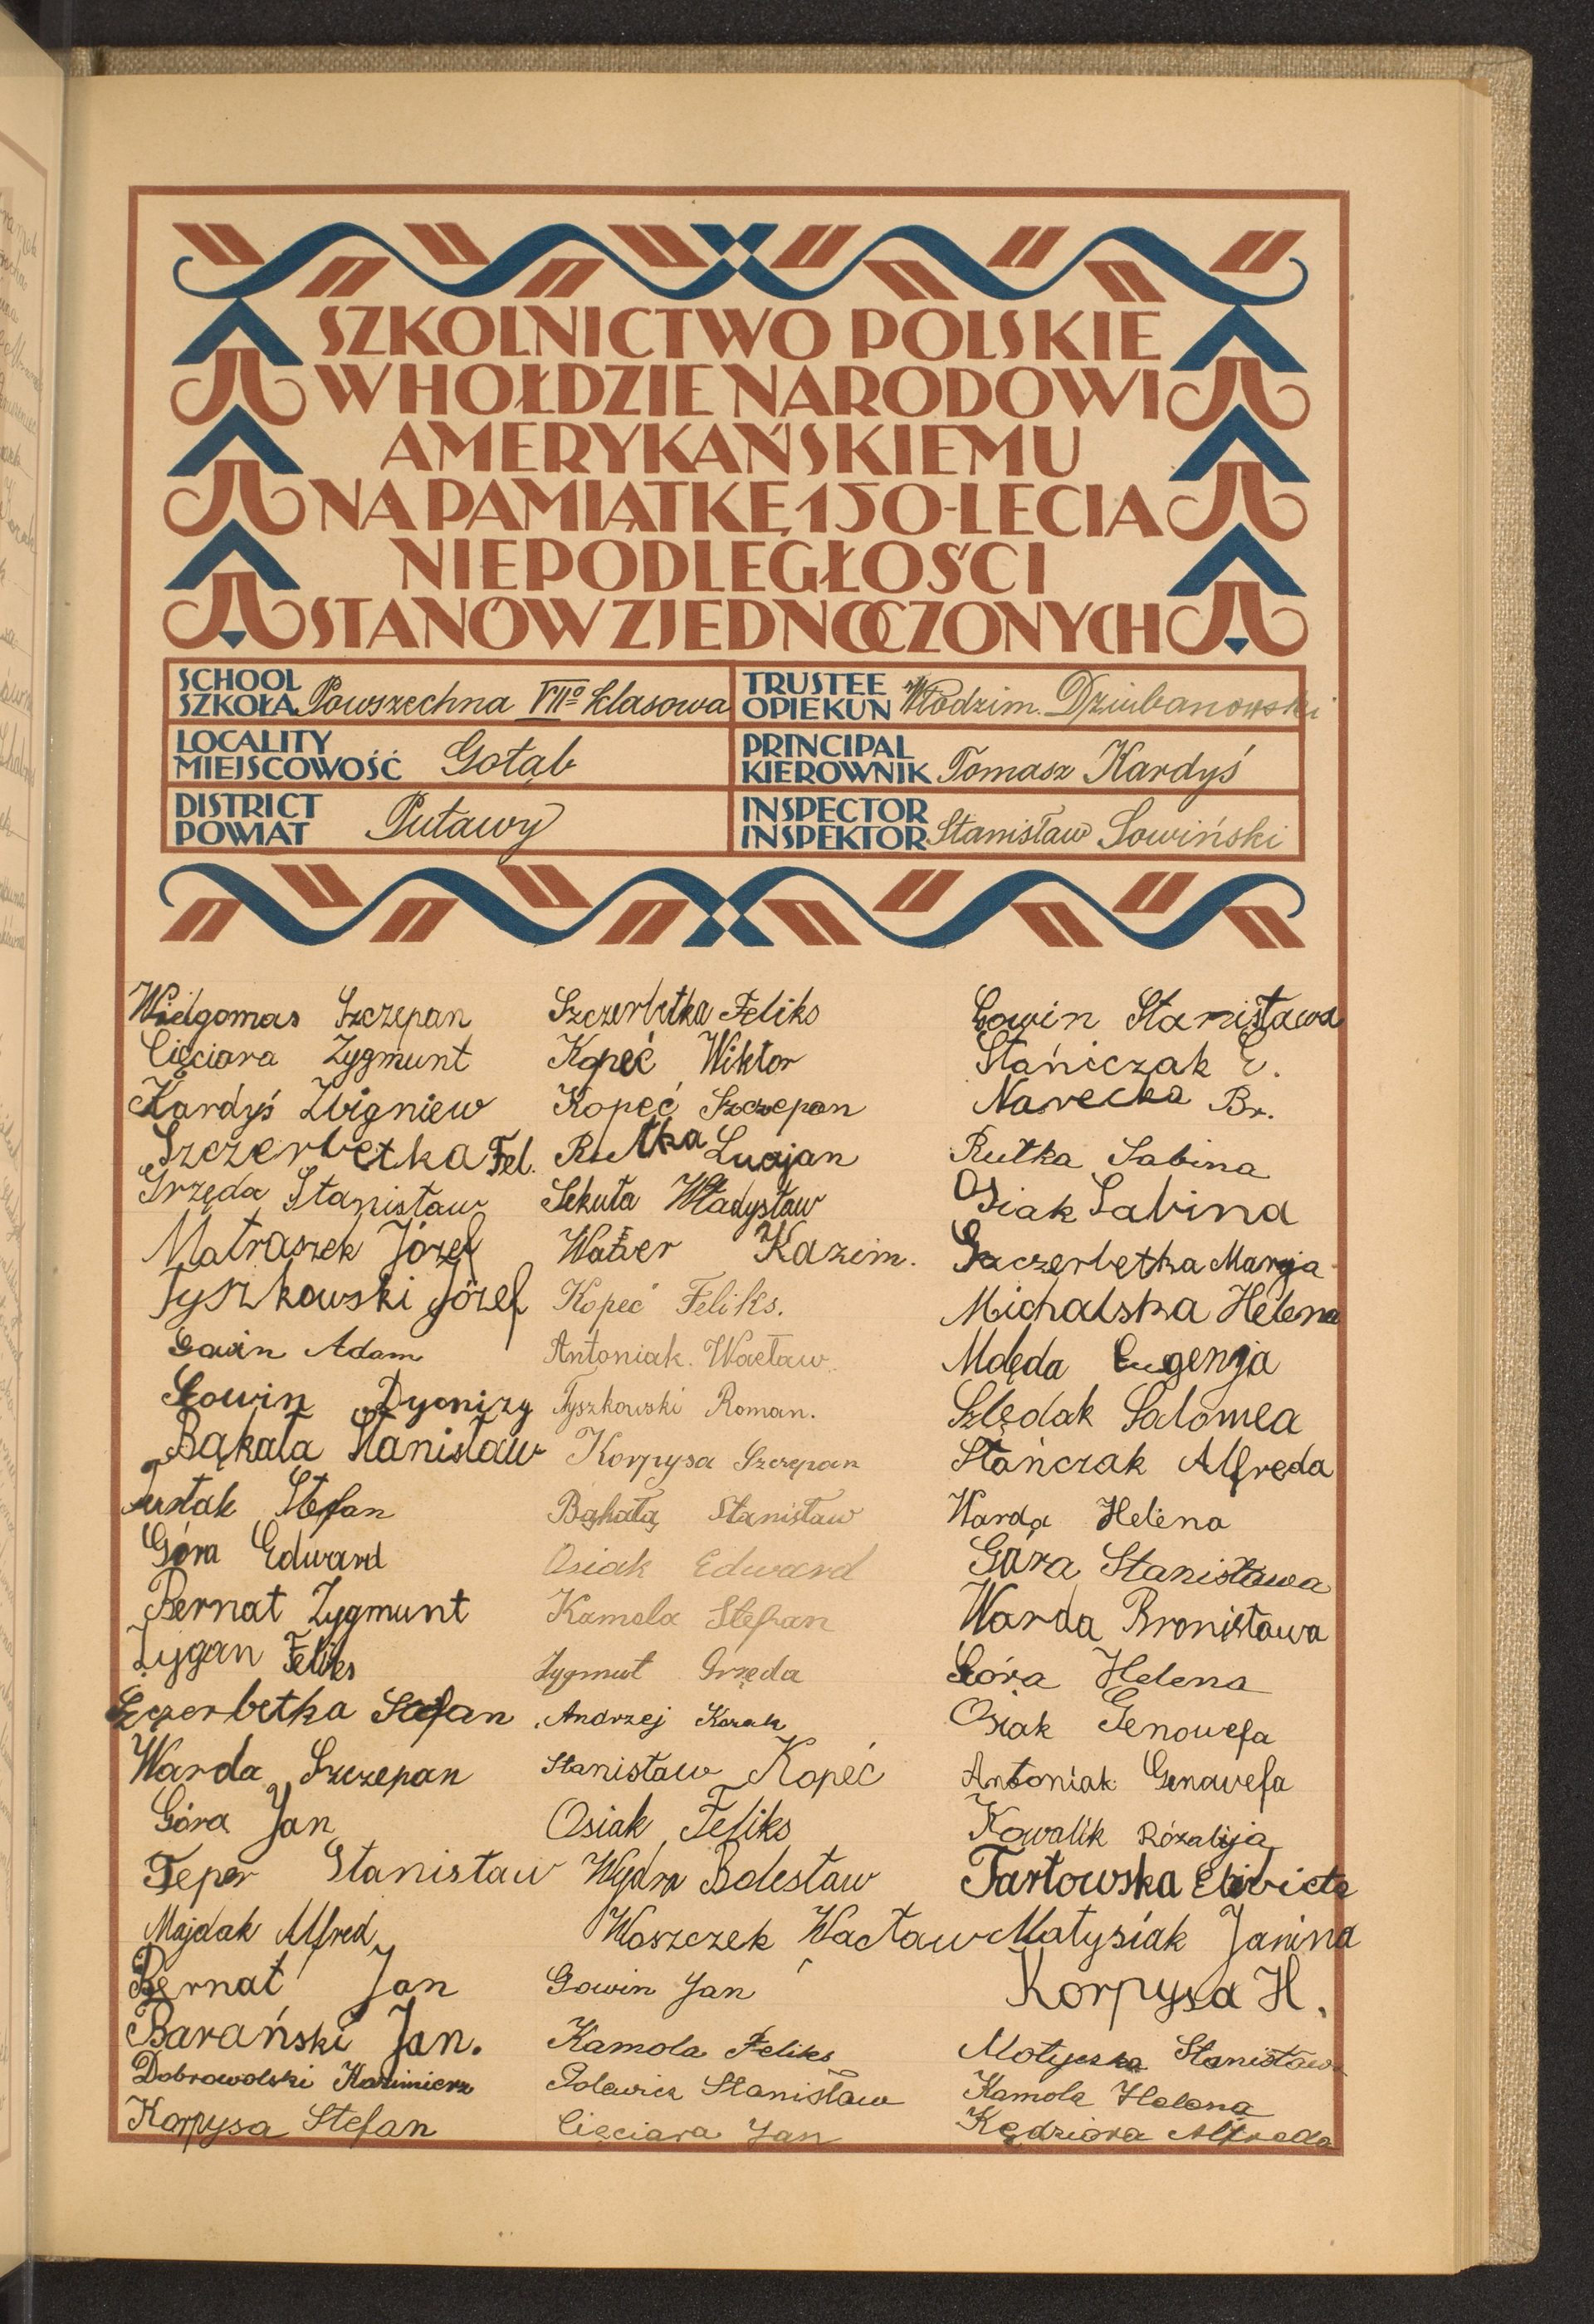 SZKOLNICTWO POLSKIE
W HOŁDZIE NARODOWI
AMERYKAŃSKIEMU
NA PAMIĄTKĘ 150-LECIA
NIEPODLEGŁOŚCI
STANÓW ZJEDNOCZONYCH
SCHOOL
SZKOŁA Powszechna VIIo klasowa
TRUSTEE
OPIEKUN Włodzim. Dziubanowski
LOCALITY
MIEJSCOWOŚĆ Gołąb
PRINCIPAL
KIEROWNIK Tomasz Kardyś
DISTRICT
POWIAT Puławy
INSPECTOR
INSPEKTOR Stanisław Sowiński
Widgomas Szczepan
Cięciara Zygmunt
Kardyś Zbigniew
Szczerbetka Fel.
Grzęda Stanisław
Matraszek Józef
Tyszkowski Józef
Gowin Adam
Gowin Dyonizy
Bąkała Stanisław
Stefan
Góra Edward
Bernat Zygmunt
Zygan Feliks
Szczerbetka Stefan
Warda Szczepan
Góra Jan
Teper Stanisław
Majdak Alfred
Bernat Jan
Barański Jan.
Dobrowolski Kazimierz
Korpysa Stefan
Szczerbetka Feliks
Kopeć Wiktor
Kopeć Szczepan
Rutka Lucjan
Sekuła Władysław
Kazim.
Kopeć Feliks.
Antoniak Wacław
Tyszkowski Roman.
Korpysa Szczepan
Bąkała Stanisław
Osiak Edward
Kamola Stefan
Zygmut Grzęda
Andrzej Kozak
Stanisław Kopeć
Osiak Feliks
Wydra Bolesław
Woszczek Wacław
Gowin Jan
Kamola Feliks
Polewicz Stanisław
Cięciara Jan
Gowin Stanisława
Stańczak E.
Narecka Br.
Rutka Sabina
Osiak Sabina
Szczerbetka Marja
Michalska Helena
Molęda Eugenja
Szlędak Salomea
Stańczak Alfreda
Warda Helena
Góra Stanisława
Warda Bronisława
Góra Helena
Osiak Genowefa
Antoniak Genowefa
Kowalik Rózalija
Tarłowska Elżbieta
Matysiak Janina
Korpysa H.
Motyczka Stanisława
Kamola Helena
Kędziora Alfreda